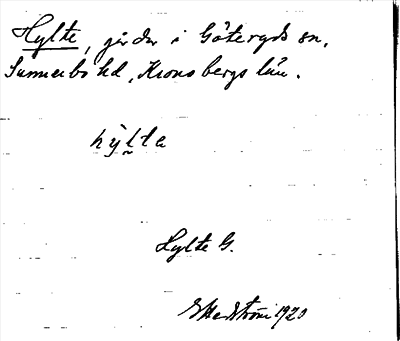 Hylte, gårdar i Göteryds sn,
Sunnerbo hd, Kronobergs län.
hy̆l̬ta
Hylte G.
1920